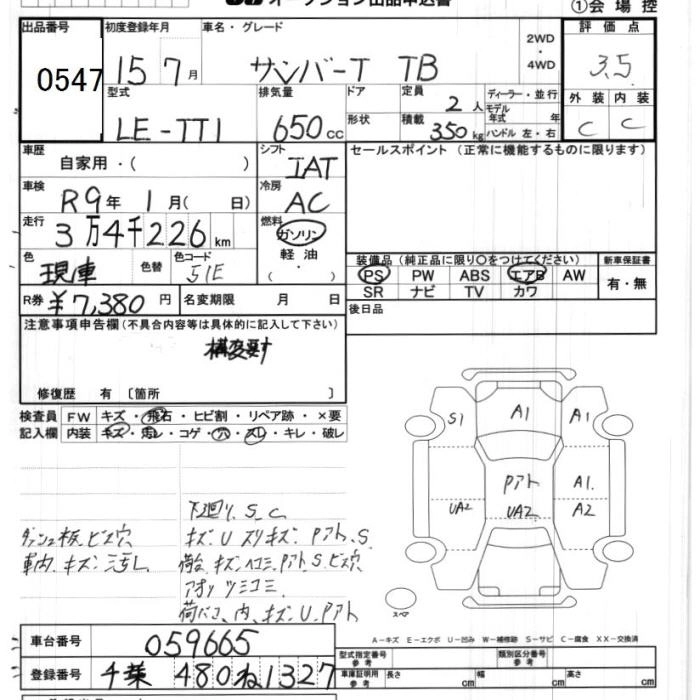 オークション出品申込書 ①会場控
出品番号 初度登録年月 車名・グレード 2WD・4WD 評価点
0547 15 7月 サンバーT TB 3.5
型式 排気量 ドア 定員 2人 ディーラー・並行 外装 内装
LE-TT1 650cc 形状 積載 350kg モデル年式 年 ハンドル 左・右 C C
車歴 自家用・( ) シフト IAT セールスポイント(正常に機能するものに限ります)
車検 R9年 1月( 日) 冷房 AC
走行 3万4千226km 燃料 ガソリン
色 現車 色替 色コード 51E 軽油・( ) 装備品(純正品に限り○をつけてください) 新車保証書
PS PW ABS エアB AW 有・無
SR ナビ TV カワ
R券 ¥7,380円 名変期限 月 日 後日品
注意事項申告欄(不具合内容等は具体的に記入して下さい)
構変要す
修復歴 有〔箇所 〕
検査員 FW キズ・飛石・ヒビ割・リペア跡・×要
記入欄 内装 キズ・汚レ・コゲ・穴・スレ・キレ・破レ
S1 A1 A1
Pアト A1
UA2 UA2 A2
下廻り S.C
ダッシュ板ビス穴 キズ.U スリキズ.Pアト.S
車内キズ.汚レ 荷台 キズ.ヘコミ.Pアト.S.ビス穴
アオリ ツミコミ
内.キズ.U.Pアト
スペア
A-キズ E-エクボ U-凹み W-補修跡 S-サビ C-腐食 XX-交換済
車台番号 059665
型式指定番号 参考 類別区分番号 参考
登録番号 千葉 480ね1327 車庫証明用 参考 長さ cm 幅 cm 高さ cm